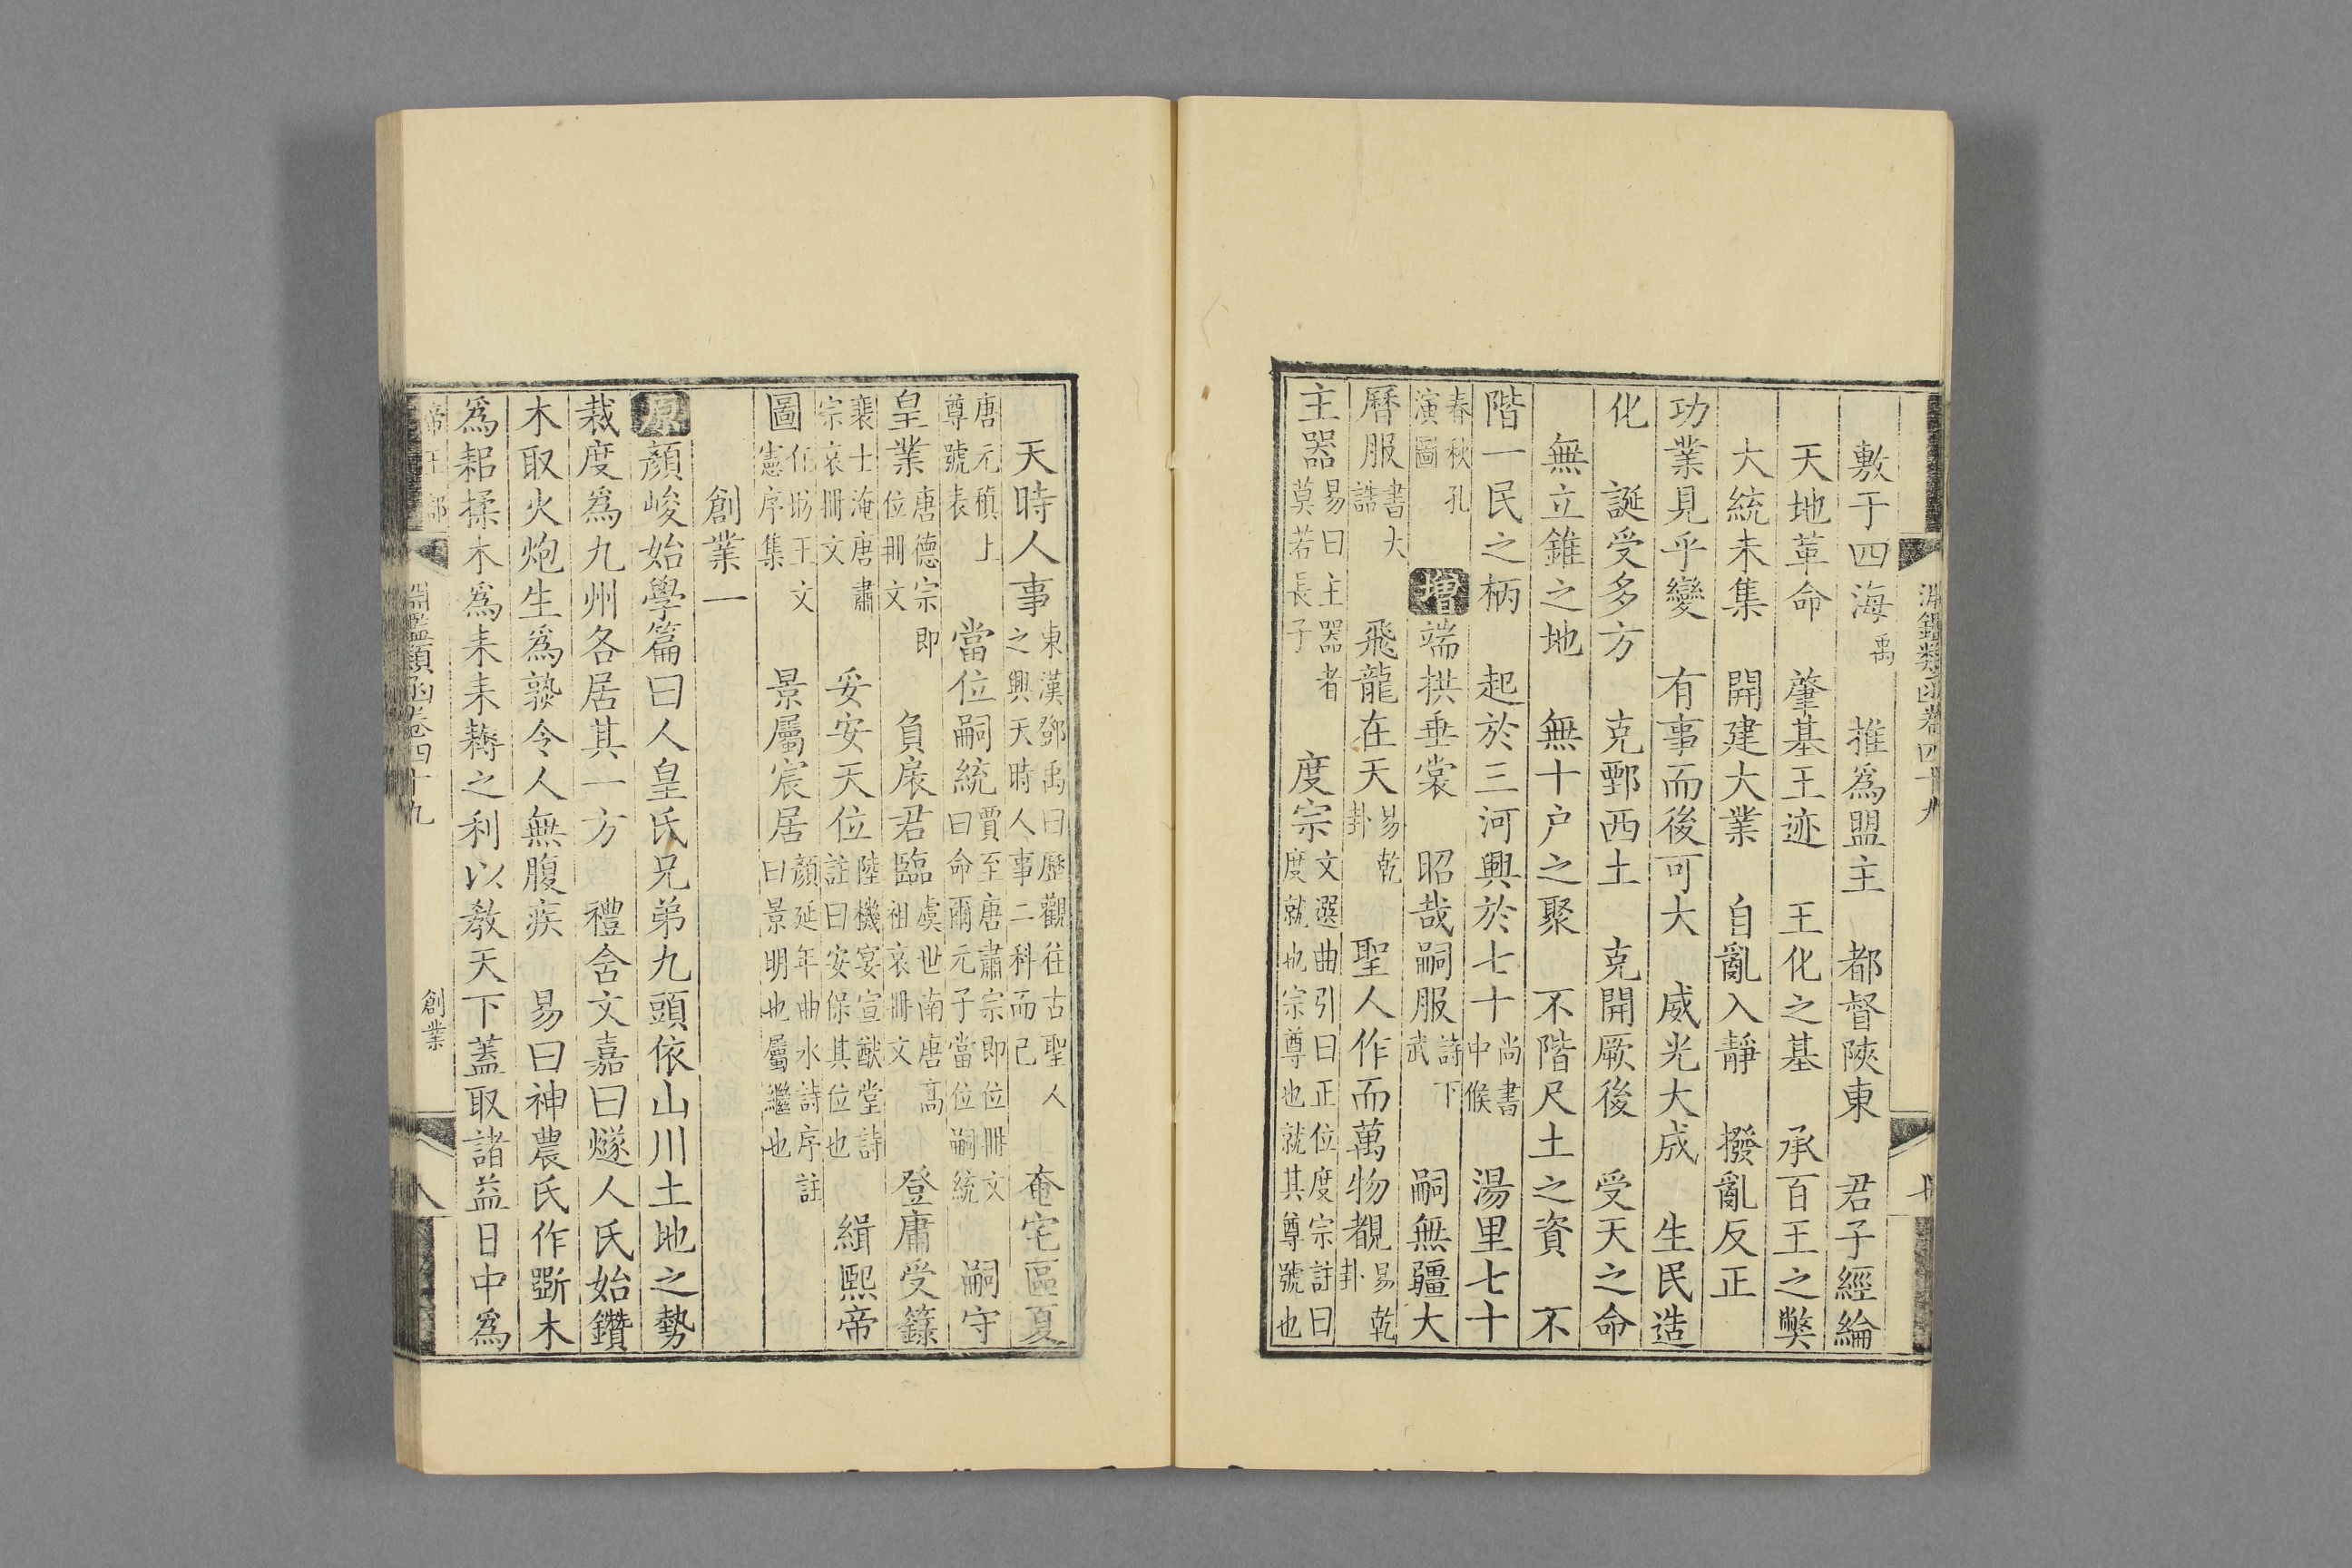 淵鑑類函卷四十九
敷于四海禹 推爲盟主 都督陝東 君子經綸
天地革命 肇基王迹 王化之基 承百王之獘
大統未集 開建大業 自亂入靜 撥亂反正
功業見乎變 有事而後可大 威光大成 生民造
化 誕受多方 克鄄西土 克開厥後 受天之命
無立錐之地 無十户之聚 不階尺土之資 不
階一民之柄 起於三河興於七十尚書中候 湯里七十
春秋孔演圖 增端拱垂裳 昭哉嗣服詩下武 嗣無疆大
曆服書大誥 飛龍在天易乾卦 聖人作而萬物覩易乾卦
主器易曰主器者莫若長子 度宗文選曲引曰正位度宗註曰度就也宗尊也就其尊號也
天時人事東漢鄧禹曰歷觀往古聖人之興天時人事二科而已 奄宅區夏
唐元稹上尊號表 當位嗣統賈至唐肅宗即位冊文曰命爾元子當位嗣統 嗣守
皇業唐德宗即位冊文 負扆君臨虞世南唐高祖哀冊文 登庸受籙
裴士淹唐肅宗哀冊文 妥安天位陸機宴宣猷堂詩註曰安保其位也 緝熙帝
圖任昉王文憲序集 景屬宸居顔延年曲水詩序註曰景明也屬繼也
創業一
原顏峻始學篇曰人皇氏兄弟九頭依山川土地之勢
裁度爲九州各居其一方 禮含文嘉曰燧人氏始鑽
木取火炮生爲熟令人無腹疾 易曰神農氏作斲木
爲耜揉木爲耒耒耨之利以教天下蓋取諸益日中爲
帝王部 淵鑑類函卷四十九 創業 八